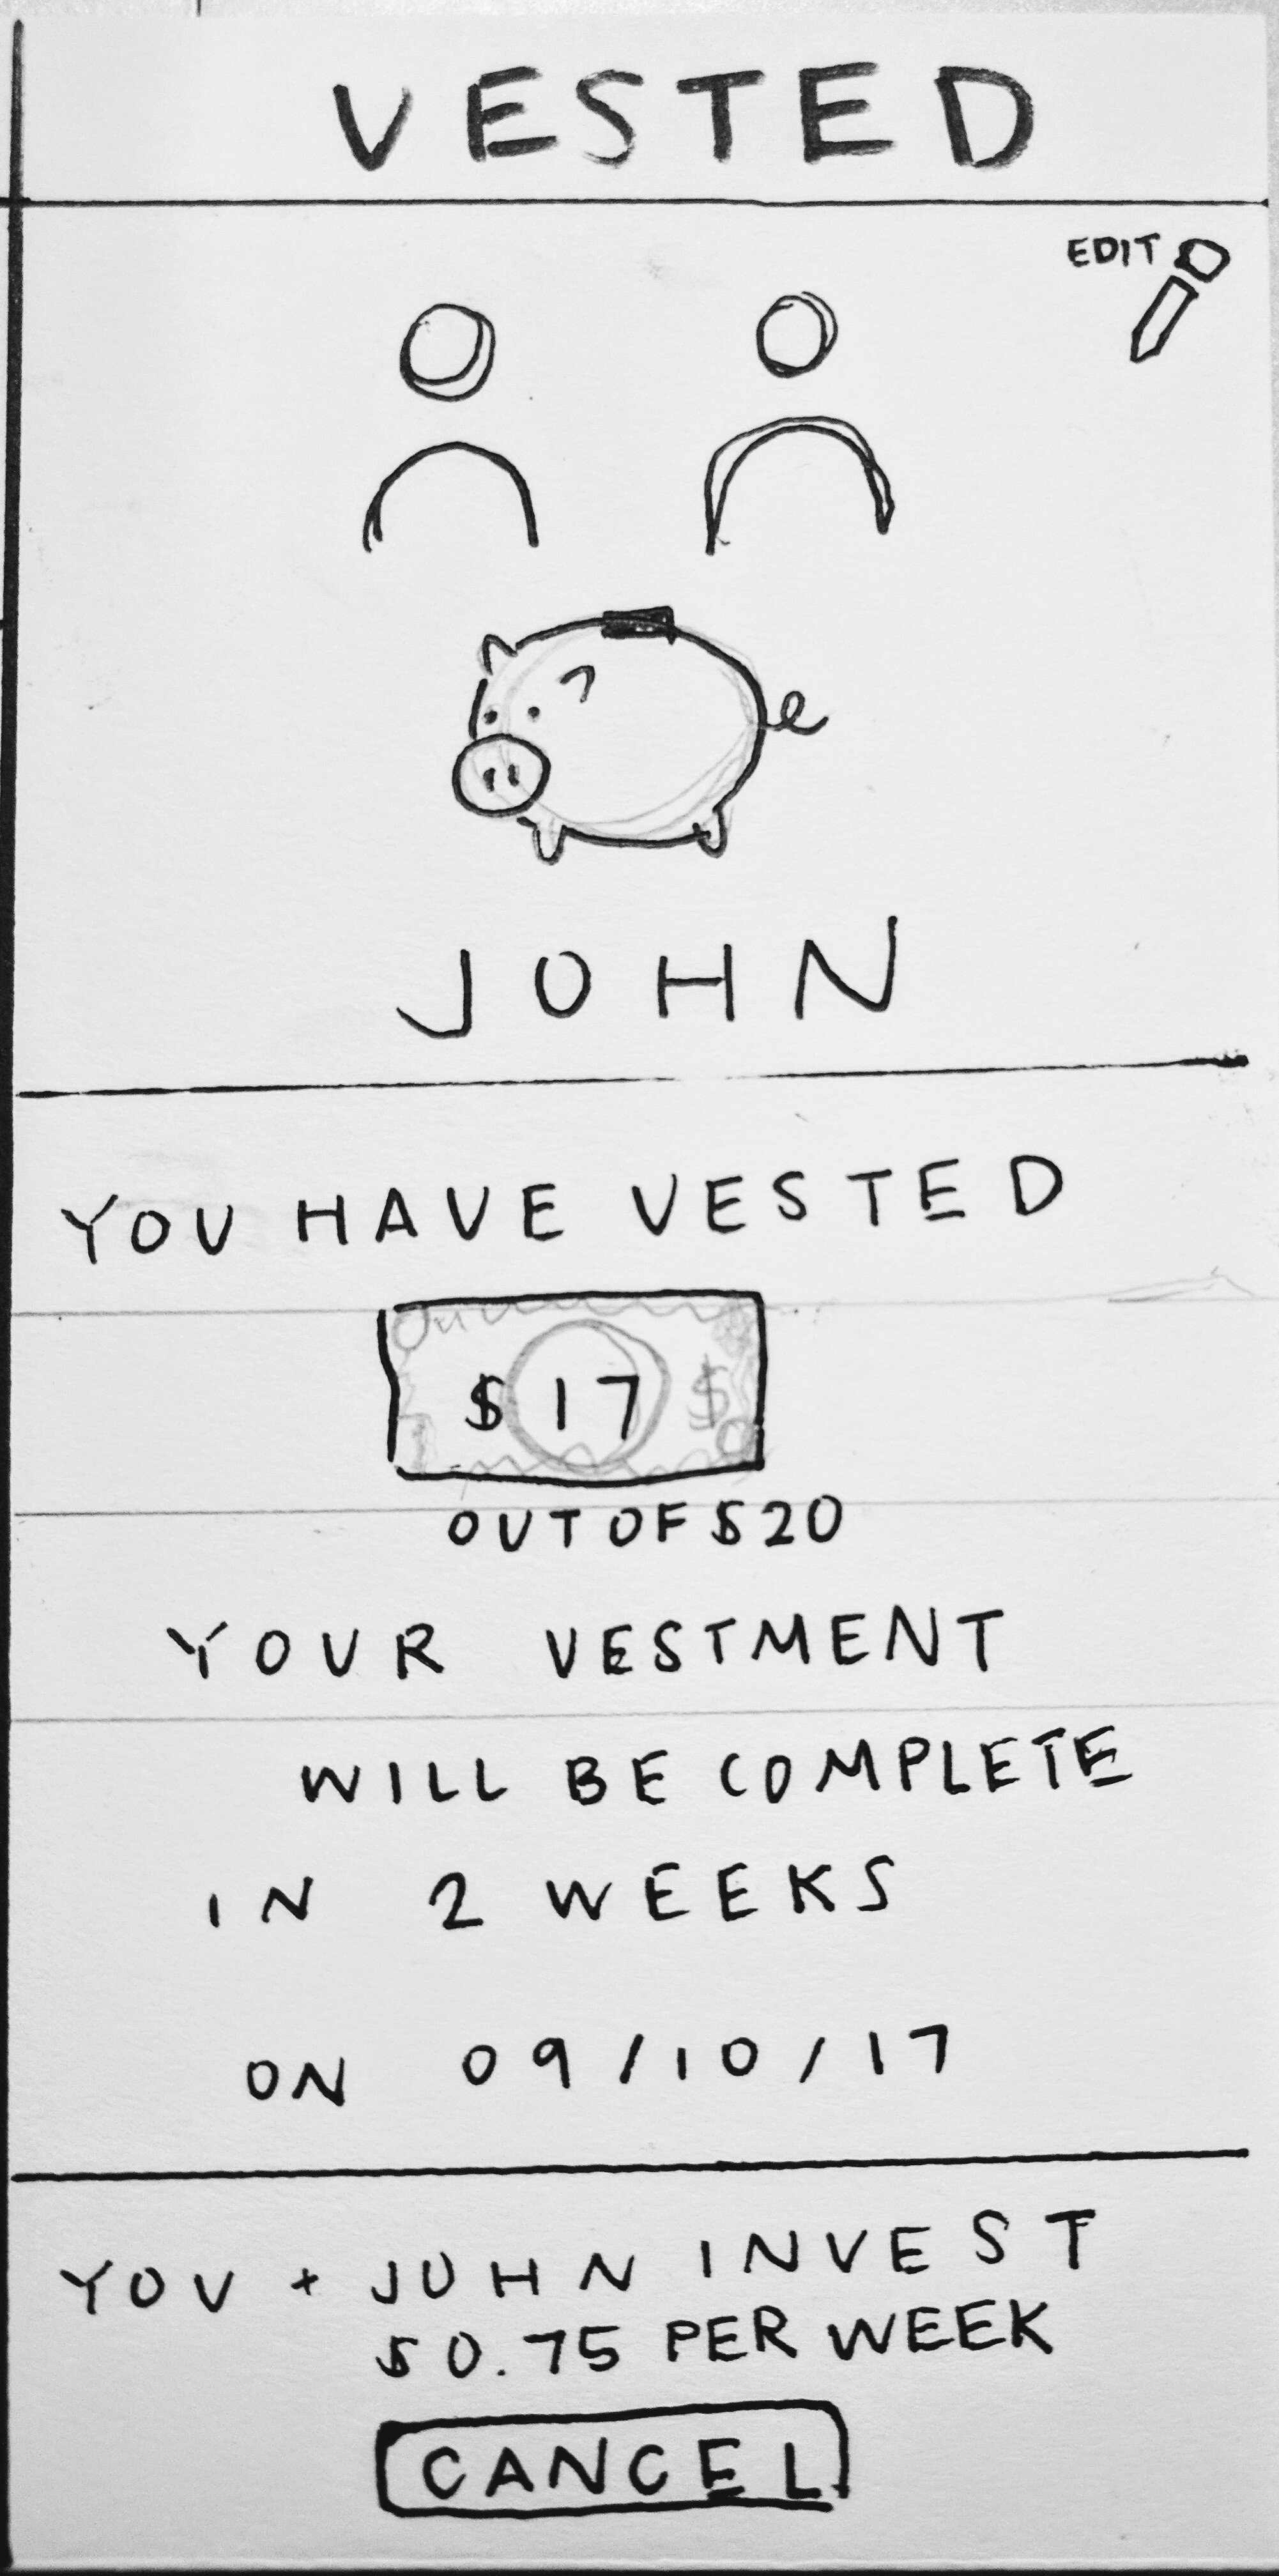 VESTED
EDIT
JOHN
YOU HAVE VESTED
$ 17 $
OUT OF $20
YOUR VESTMENT
WILL BE COMPLETE
IN 2 WEEKS
ON 09/10/17
YOU + JOHN INVEST
$0.75 PER WEEK
CANCEL